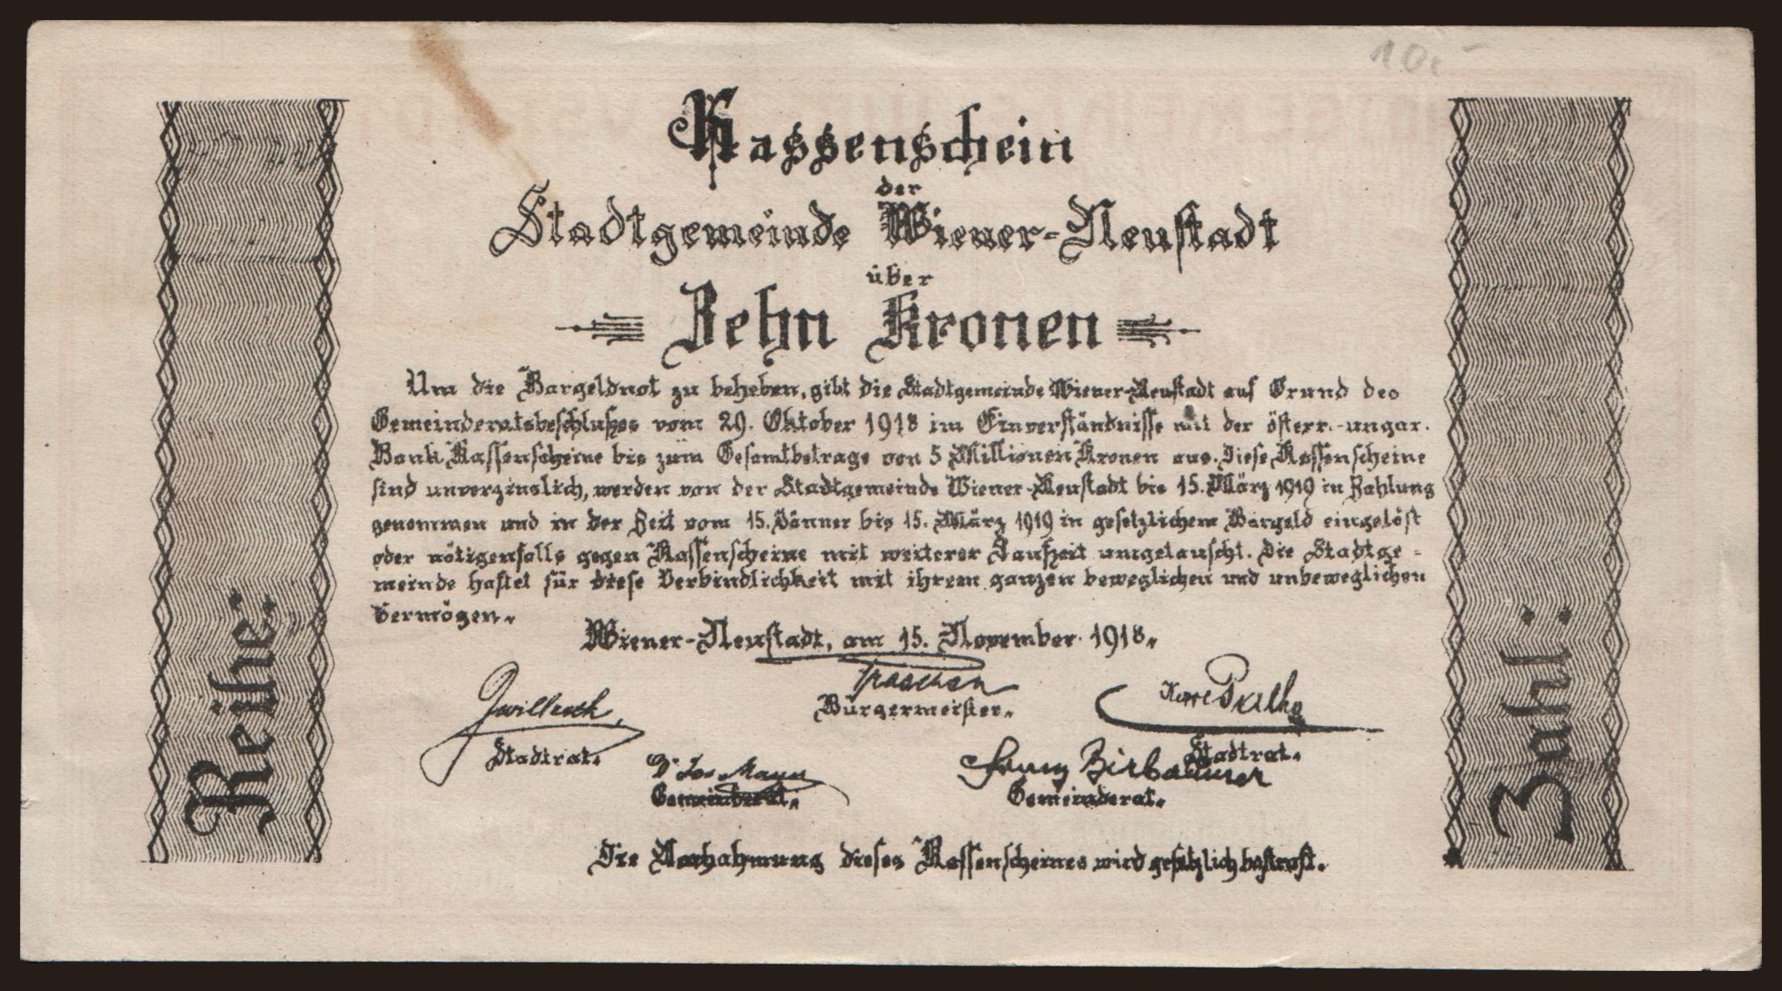 10.-
Kassenschein
der
Stadtgemeinde Wiener-Neustadt
über
Zehn Kronen
Um die Bargeldnot zu beheben, gibt die Stadtgemeinde Wiener-Neustadt auf Grund des
Gemeinderatsbeschlußes vom 29. Oktober 1918 im Einverständnisse mit der österr.-ungar.
Bank Kassenscheine bis zum Gesamtbetrage von 5 Millionen Kronen aus. Diese Kassenscheine
sind unverzinslich, werden von der Stadtgemeinde Wiener-Neustadt bis 15. März 1919 in Zahlung
genommen und in der Zeit vom 15. Jänner bis 15. März 1919 in gesetzlichem Bargeld eingelöst
oder nötigenfalls gegen Kassenscheine mit weiterer Laufzeit umgetauscht. Die Stadtge-
meinde haftet für diese Verbindlichkeit mit ihrem ganzen beweglichen und unbeweglichen
Vermögen.
Wiener-Neustadt, am 15. November 1918.
Bürgermeister.
Stadtrat.
Stadtrat.
Dr Jos Mann
Franz Birbaumer
Gemeinderat.
Gemeinderat.
Die Nachahmung dieses Kassenscheines wird gesetzlich bestraft.
Reihe:
Zahl: